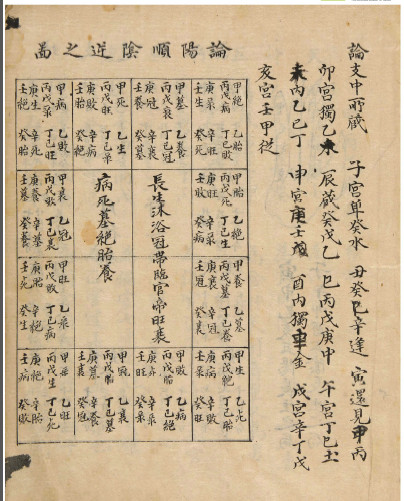 論支中所藏 子宮单癸水 丑癸己辛逢 寅還見甲丙
卯宮獨乙木 辰藏癸戊乙 巳丙戊庚中 午宮丁己土
未內乙己丁 申宮庚壬戊 酉內獨辛金 戌宮辛丁戊
亥宮壬甲從
論陽順陰逆之啚
甲絕 乙胎
丙戊病 丁己敗
庚彔 辛旺
壬生 癸死
甲墓 乙養
丙戊衰 丁己冠
庚冠 辛衰
壬養 癸墓
甲死 乙生
丙戊旺 丁己彔
庚敗 辛病
壬胎 癸絕
甲病 乙敗
丙戊彔 丁己旺
庚生 辛死
壬絕 癸胎
甲胎 乙絕
丙戊死 丁己生
庚旺 辛彔
壬敗 癸病
長生沐浴冠帶臨官帝旺衰
病死墓絕胎養
甲衰 乙冠
丙戊冠 丁己衰
庚養 辛墓
壬墓 癸養
甲養 乙墓
丙戊墓 丁己養
庚衰 辛冠
壬冠 癸衰
甲旺 乙彔
丙戊敗 丁己病
庚胎 辛絕
壬死 癸生
甲生 乙死
丙戊絕 丁己胎
庚病 辛敗
壬彔 癸旺
甲敗 乙病
丙戊胎 丁己絕
庚死 辛生
壬旺 癸彔
甲冠 乙衰
丙戊養 丁己墓
庚墓 辛養
壬衰 癸冠
甲彔 乙旺
丙戊生 丁己死
庚絕 辛胎
壬病 癸敗